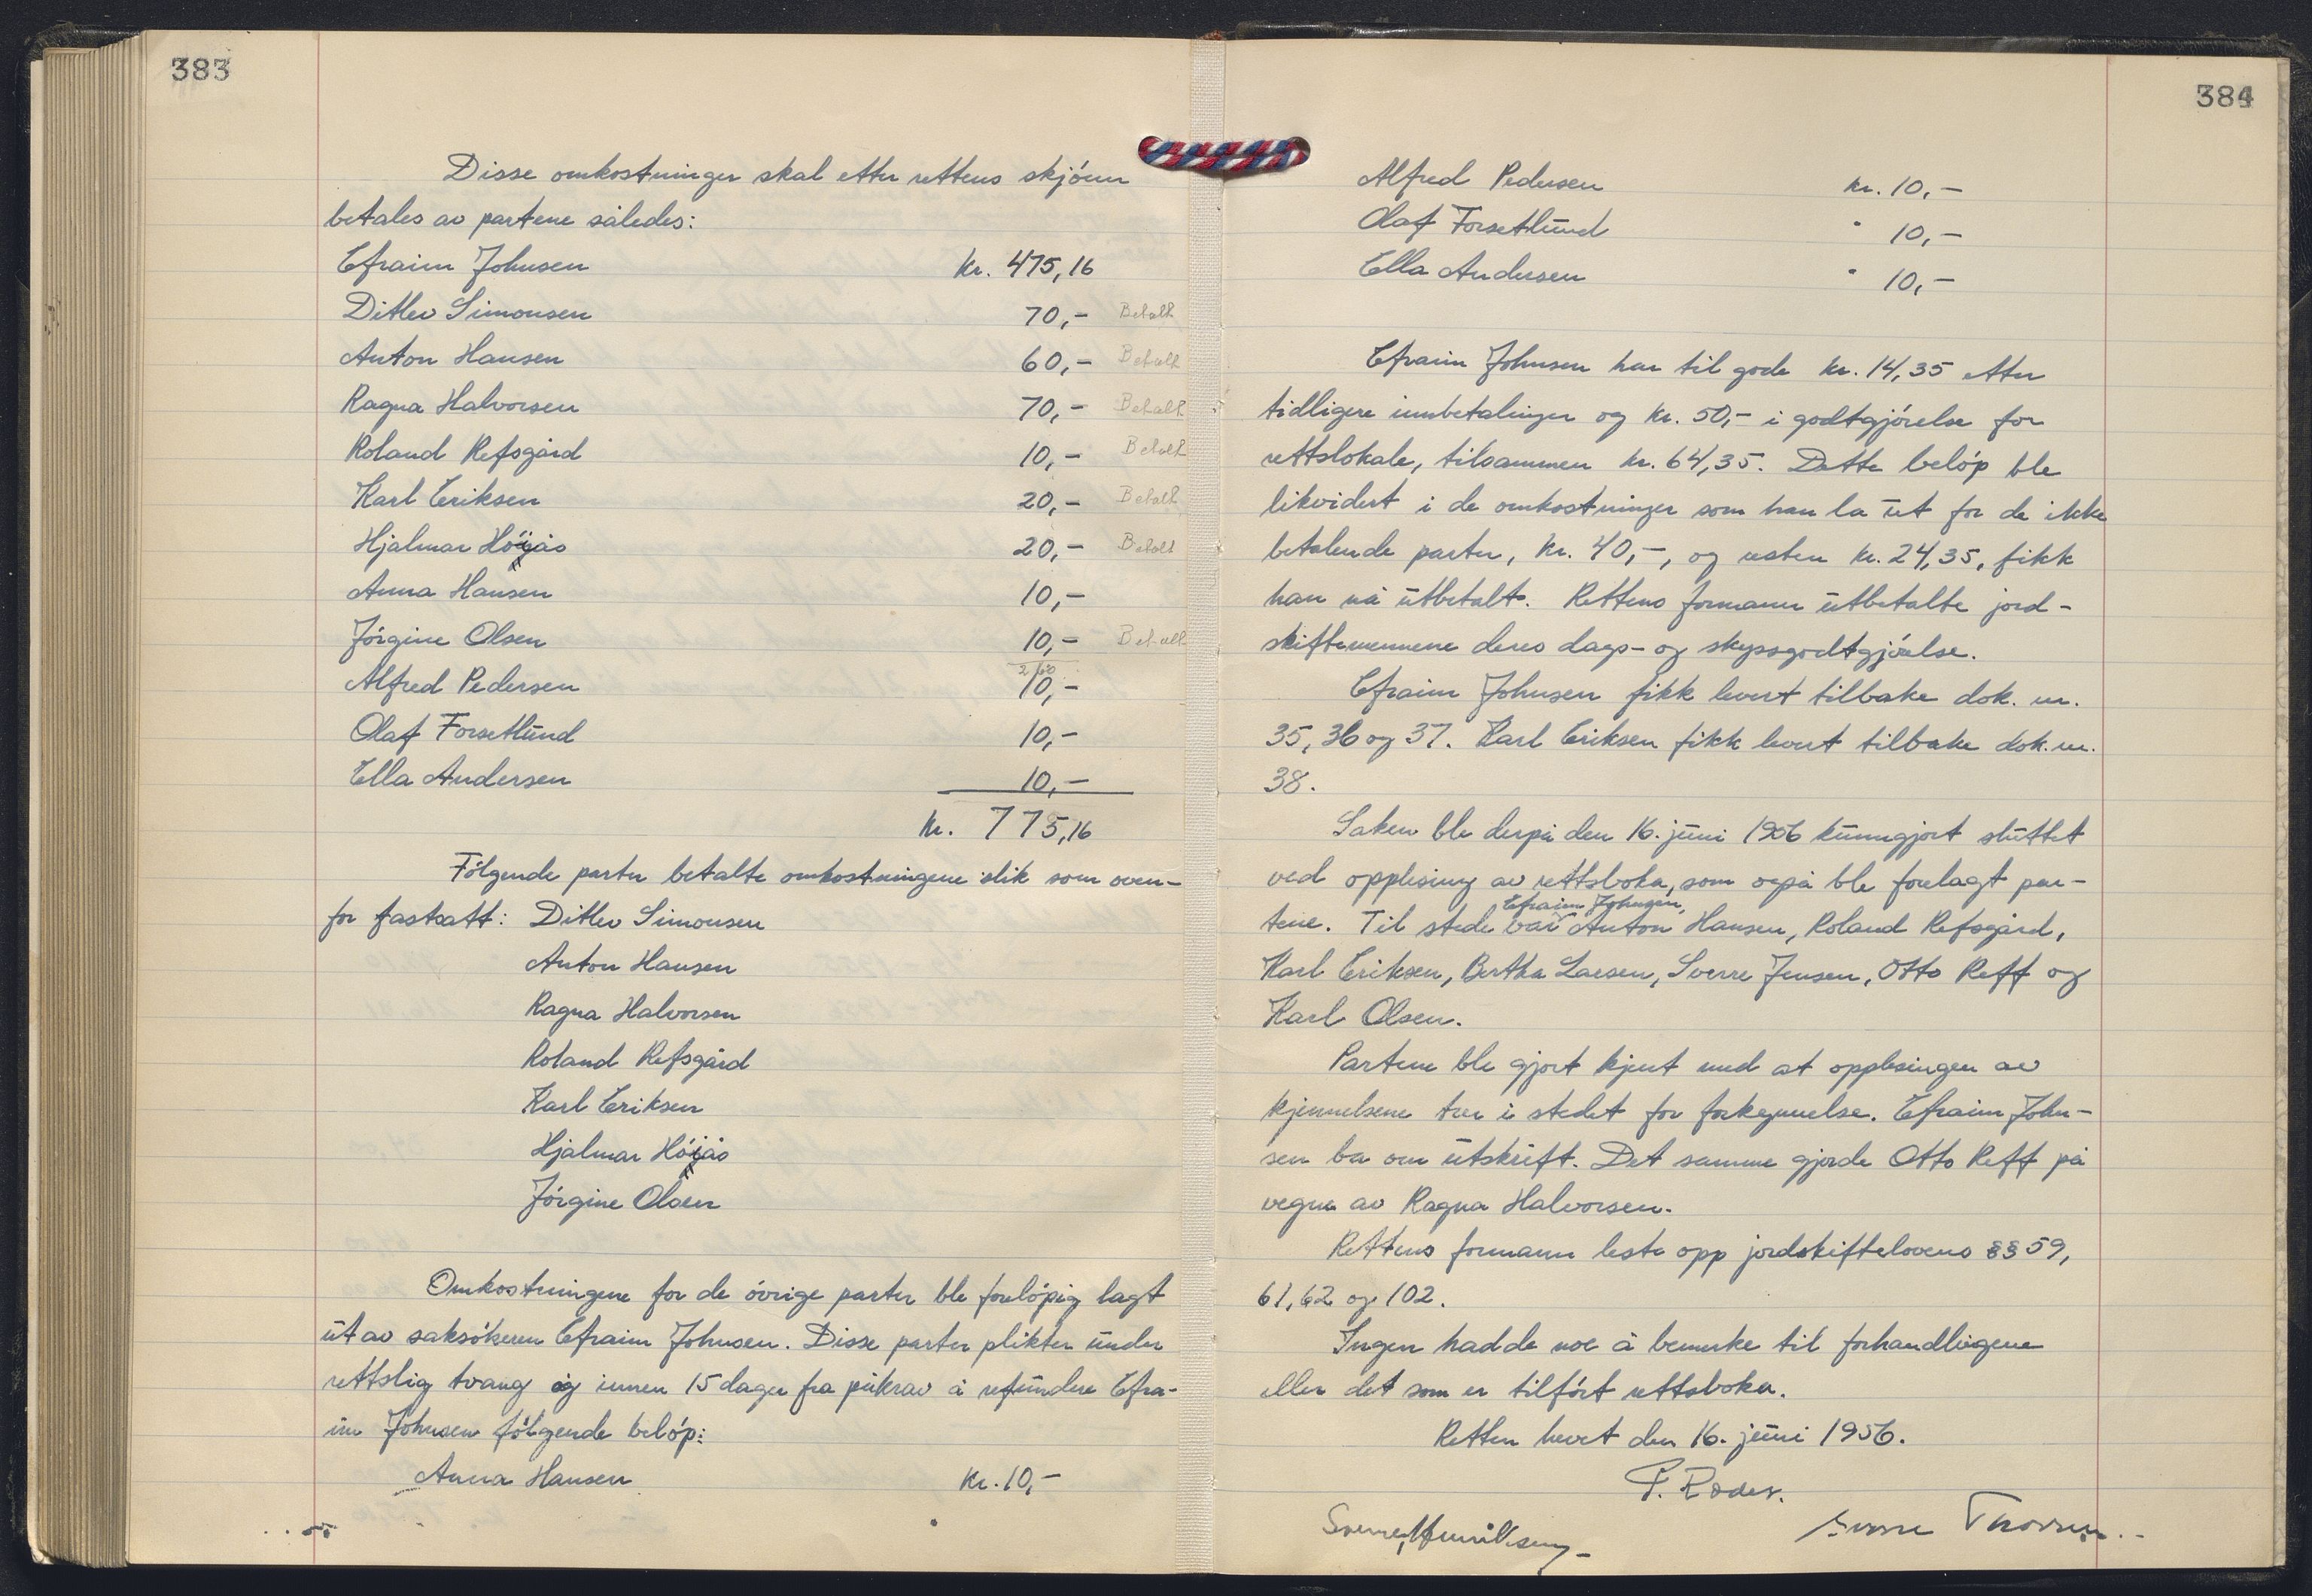 383
Disse omkostninger skal etter rettens skjónn
betales av partene således:
Efraim Johnsen kr. 475,16
Ditlev Simonsen 70,- Betalt
Anton Hansen 60,- Betalt
Ragna Halvorsen 70,- Betalt
Roland Refsgård 10,- Betalt
Karl Eriksen 20,- Betalt
Hjalmar Höjås 20,- Betalt
Anna Hansen 10,-
Jórgine Olsen 10,- Betalt
Alfred Pedersen 10,-
Olaf Forsetlund 10,-
Ella Andersen 10,-
kr. 775,16
Fólgende parter betalte omkostningene slik som oven-
for fastsatt: Ditlev Simonsen
Anton Hansen
Ragna Halvorsen
Roland Refsgård
Karl Eriksen
Hjalmar Hójås
Jórgine Olsen
Omkostningene for de óvrige parter ble forelópig lagt
ut av saksókeren Efraim Johnsen. Disse parter plikter under
rettslig tvang og innen 15 dager fra påkrav å refundere Efra-
im Johnsen fólgende belóp:
Anna Hansen kr. 10,-
384
Alfred Pedersen kr. 10,-
Olaf Forsetlund " 10,-
Ella Andersen " 10,-
Efraim Johnsen har til gode kr. 14,35 etter
tidligere innbetalinger og kr. 50,- i godtgjórelse for
rettslokale, tilsammen kr. 64,35. Dette belóp ble
likvidert i de omkostninger som han la ut for de ikke
betalende parter, kr. 40,-, og resten kr. 24,35, fikk
han nå utbetalt. Rettens formann utbetalte jord-
skiftemennene deres dags- og skyssgodtgjórelse.
Efraim Johnsen fikk levert tilbake dok. nr.
35, 36 og 37. Karl Eriksen fikk levert tilbake dok. nr.
38.
Saken ble derpå den 16. juni 1956 kunngjort sluttet
ved opplesing av rettsboka, som også ble forelagt par-
Efraim Johnsen,
tene. Til stede var Anton Hansen, Roland Refsgård,
Karl Eriksen, Bertha Larsen, Sverre Jensen, Otto Reff og
Karl Olsen.
Partene ble gjort kjent med at opplesingen av
kjennelsene trer i stedet for forkynnelse. Efraim John-
sen ba om utskrift. Det samme gjorde Otto Reff på
vegne av Ragna Halvorsen.
Rettens formann leste opp jordskiftelovens §§ 59,
61, 62 og 102.
Ingen hadde noe å bemerke til forhandlingene
eller det som er tilfórt rettsboka.
Retten hevet den 16. juni 1956.
P. Roder.
Sverre Henriksen